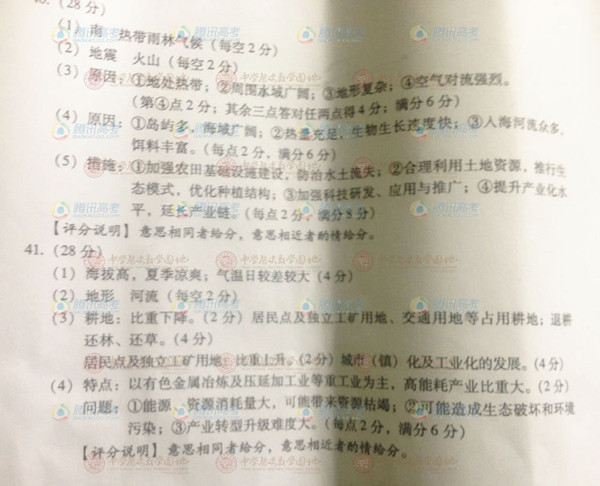 (28分)
(1) 南 热带雨林气候 (每空2分)
(2) 地震 火山 (每空2分)
(3) 原因: ①地处热带; ②周围水域广阔; ③地形复杂; ④空气对流强烈。
(第④点2分; 其余三点答对任两点得4分; 满分6分)
(4) 原因: ①岛屿多, 海域广阔; ②热量充足, 生物生长速度快; ③入海河流众多,
饵料丰富。(每点2分, 满分6分)
(5) 措施: ①加强农田基础设施建设, 防治水土流失; ②合理利用土地资源, 推行生
态模式, 优化种植结构; ③加强科技研发、应用与推广; ④提升产业化水
平, 延长产业链。(每点2分, 满分8分)
【评分说明】意思相同者给分, 意思相近者酌情给分。
41. (28分)
(1) 海拔高, 夏季凉爽; 气温日较差较大 (4分)
(2) 地形 河流 (每空2分)
(3) 耕地: 比重下降。(2分) 居民点及独立工矿用地、交通用地等占用耕地; 退耕
还林、还草。(4分)
居民点及独立工矿用地: 比重上升。(2分) 城市 (镇) 化及工业化的发展。(4分)
(4) 特点: 以有色金属冶炼及压延加工业等重工业为主, 高能耗产业比重大。(2分)
问题: ①能源、资源消耗量大, 可能带来资源枯竭; ②可能造成生态破坏和环境
污染; ③产业转型升级难度大。(每点2分, 满分6分)
【评分说明】意思相同者给分, 意思相近者酌情给分。
腾讯高考
中学历史教学园地